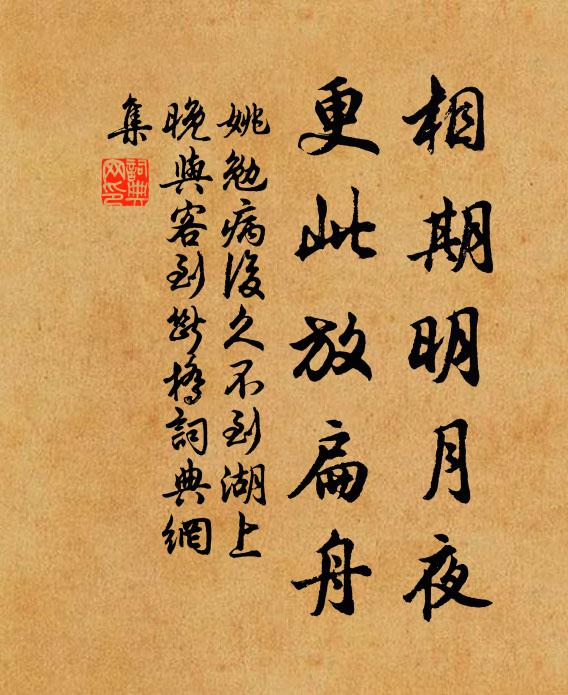 相期明月夜
更此放扁舟
姚勉病後久不到湖上
晚與客到斷橋詞典網
集
詞典網印